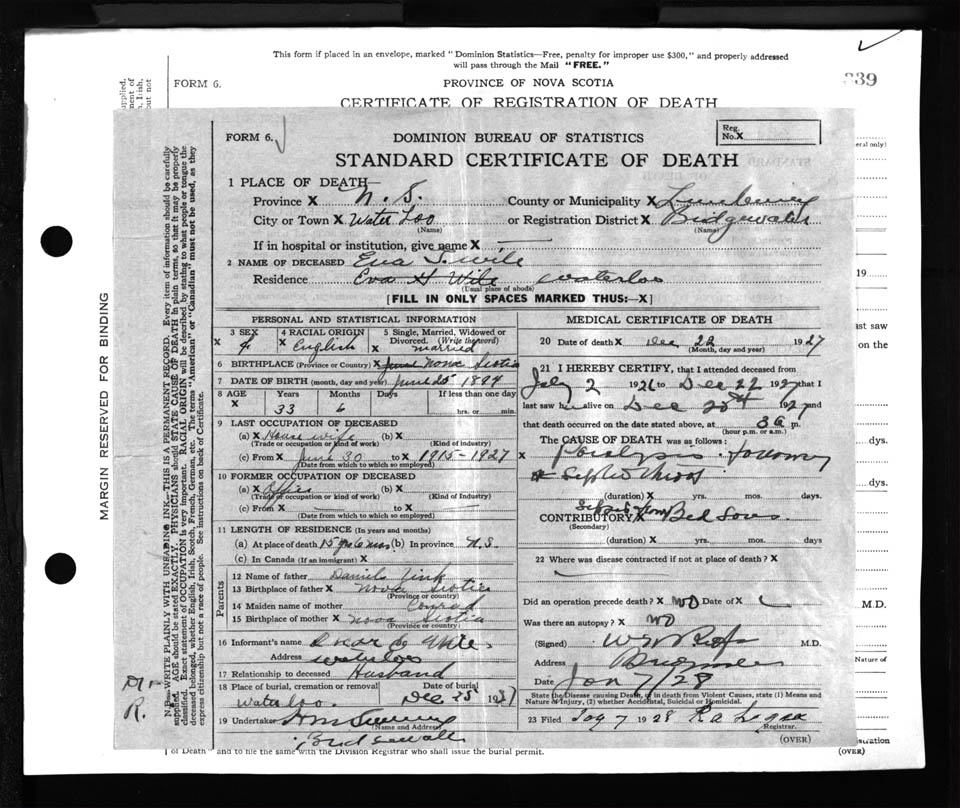 This form if placed in an envelope, marked "Dominion Statistics—Free, penalty for improper use $300," and properly addressed
will pass through the Mail "FREE."
FORM 6.
PROVINCE OF NOVA SCOTIA
339
CERTIFICATE OF REGISTRATION OF DEATH
FORM 6.
DOMINION BUREAU OF STATISTICS
Reg. No. X
STANDARD CERTIFICATE OF DEATH
1 PLACE OF DEATH—
Province X N. S. County or Municipality X Lunenburg
City or Town X Water Loo or Registration District X Bridgewater
(Name) (Name)
If in hospital or institution, give name X
2 NAME OF DECEASED Eva S. Wile
Residence Eva H Wile Waterloo
(Usual place of abode)
[FILL IN ONLY SPACES MARKED THUS:—X]
PERSONAL AND STATISTICAL INFORMATION
3 SEX X f.
4 RACIAL ORIGIN X English
5 Single, Married, Widowed or Divorced. (Write the word) X married
6 BIRTHPLACE (Province or Country) X Nova Scotia
7 DATE OF BIRTH (month, day and year) June 25 1894
8 AGE X Years 33 Months 6 Days If less than one day hrs. or min.
9 LAST OCCUPATION OF DECEASED
(a) X House wife (b) X
(Trade or occupation or kind of work) (Kind of industry)
(c) From X June 30 to X 1915-1927
(Date from which to which so employed)
10 FORMER OCCUPATION OF DECEASED
(a) X (b) X
(Trade or occupation or kind of work) (Kind of industry)
(c) From X to X
(Date from which to which so employed)
11 LENGTH OF RESIDENCE (In years and months)
(a) At place of death 15 yrs 6 mos (b) In province N.S.
(c) In Canada (If an immigrant) X
Parents
12 Name of father Daniel Zink
13 Birthplace of father X Nova Scotia
(Province or country)
14 Maiden name of mother Conrad
15 Birthplace of mother X Nova Scotia
(Province or country)
16 Informant's name
Address Waterloo
17 Relationship to deceased Husband
18 Place of burial, cremation or removal Date of burial
Water Loo. Dec 25 19
19 Undertaker
(Name and Address)
MEDICAL CERTIFICATE OF DEATH
20 Date of death X Dec 22 1927
(Month, day and year)
21 I HEREBY CERTIFY, that I attended deceased from
July 2 1926 to Dec 22 1927 that I
last saw h alive on Dec 1927 and
that death occurred on the date stated above, at 3 a m.
(hour p.m. or a.m.)
The CAUSE OF DEATH was as follows:
X Paralysis following
(duration) X yrs. mos. days
CONTRIBUTORY X from Bed Sores
(Secondary)
(duration) X yrs. mos. days
22 Where was disease contracted if not at place of death? X
Did an operation precede death? X no Date of X
Was there an autopsy? X no
(Signed) M.D.
Address
Date Jan 7/28
State the Disease causing Death, or in death from Violent Causes, state (1) Means and
Nature of Injury, (2) whether Accidental, Suicidal or Homicidal.
23 Filed 7 1928
Registrar.
(OVER)
MARGIN RESERVED FOR BINDING
N.B.—WRITE PLAINLY WITH UNFADING INK—THIS IS A PERMANENT RECORD. Every item of information should be carefully
supplied. AGE should be stated EXACTLY. PHYSICIANS should STATE CAUSE OF DEATH in plain terms, so that it may be properly
classified. Exact statement of OCCUPATION is very important. RACIAL ORIGIN will be described by stating to what people or tongue the
deceased belonged, whether English, Irish, Scotch, French, German, etc. The terms "American" or "Canadian" must not be used, as they
express citizenship but not a race of people. See instructions on back of Certificate.
R.
19
ast saw
on the
dys.
dys.
M.D.
Nature of
istration
(OVER)
of Death" and to file the same with the Division Registrar who shall issue the burial permit.